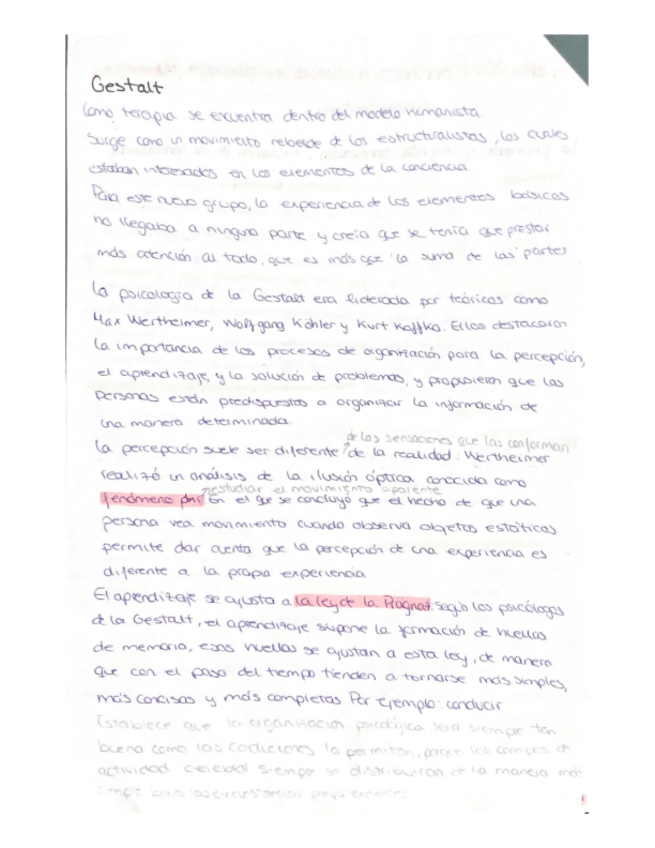 Gestalt
Como terapia se encuentra dentro del modelo humanista.
Surge como un movimiento rebelde de los estructuralistas, los cuales
estaban interesados en los elementos de la conciencia.
Para este nuevo grupo, la experiencia de los elementos básicos
no llegaba a ninguna parte y creía que se tenía que prestar
más atención al todo, que es más que "la suma de las" partes
La psicología de la Gestalt era liderada por teóricos como
Max Wertheimer, Wolfgang Köhler y Kurt Koffka. Ellos destacaron
la importancia de los procesos de organización para la percepción,
el aprendizaje, y la solución de problemas, y propusieron que las
personas están predispuestas a organizar la información de
una manera determinada.
de las sensaciones que las conforman
La percepción suele ser diferente de la realidad. Wertheimer
realizó un análisis de la ilusión óptica conocida como
estudiar el movimiento aparente
fenómeno phi En el que se concluyó que el hecho de que una
persona vea movimiento cuando observa objetos estáticos
permite dar cuenta que la percepción de una experiencia es
diferente a la propia experiencia
El aprendizaje se ajusta a la ley de la Prägnaz. según los psicólogos
de la Gestalt, el aprendizaje supone la formación de huellas
de memoria, esas huellas se ajustan a esta ley, de manera
que con el paso del tiempo tienden a tornarse más simples,
más concisas y más completas. Por ejemplo: conducir
Establece que la organización psicológica será siempre tan
buena como las condiciones lo permitan, los campos de
actividad cerebral siempre se distribuirán de la manera más
simple bajo las circunstancias